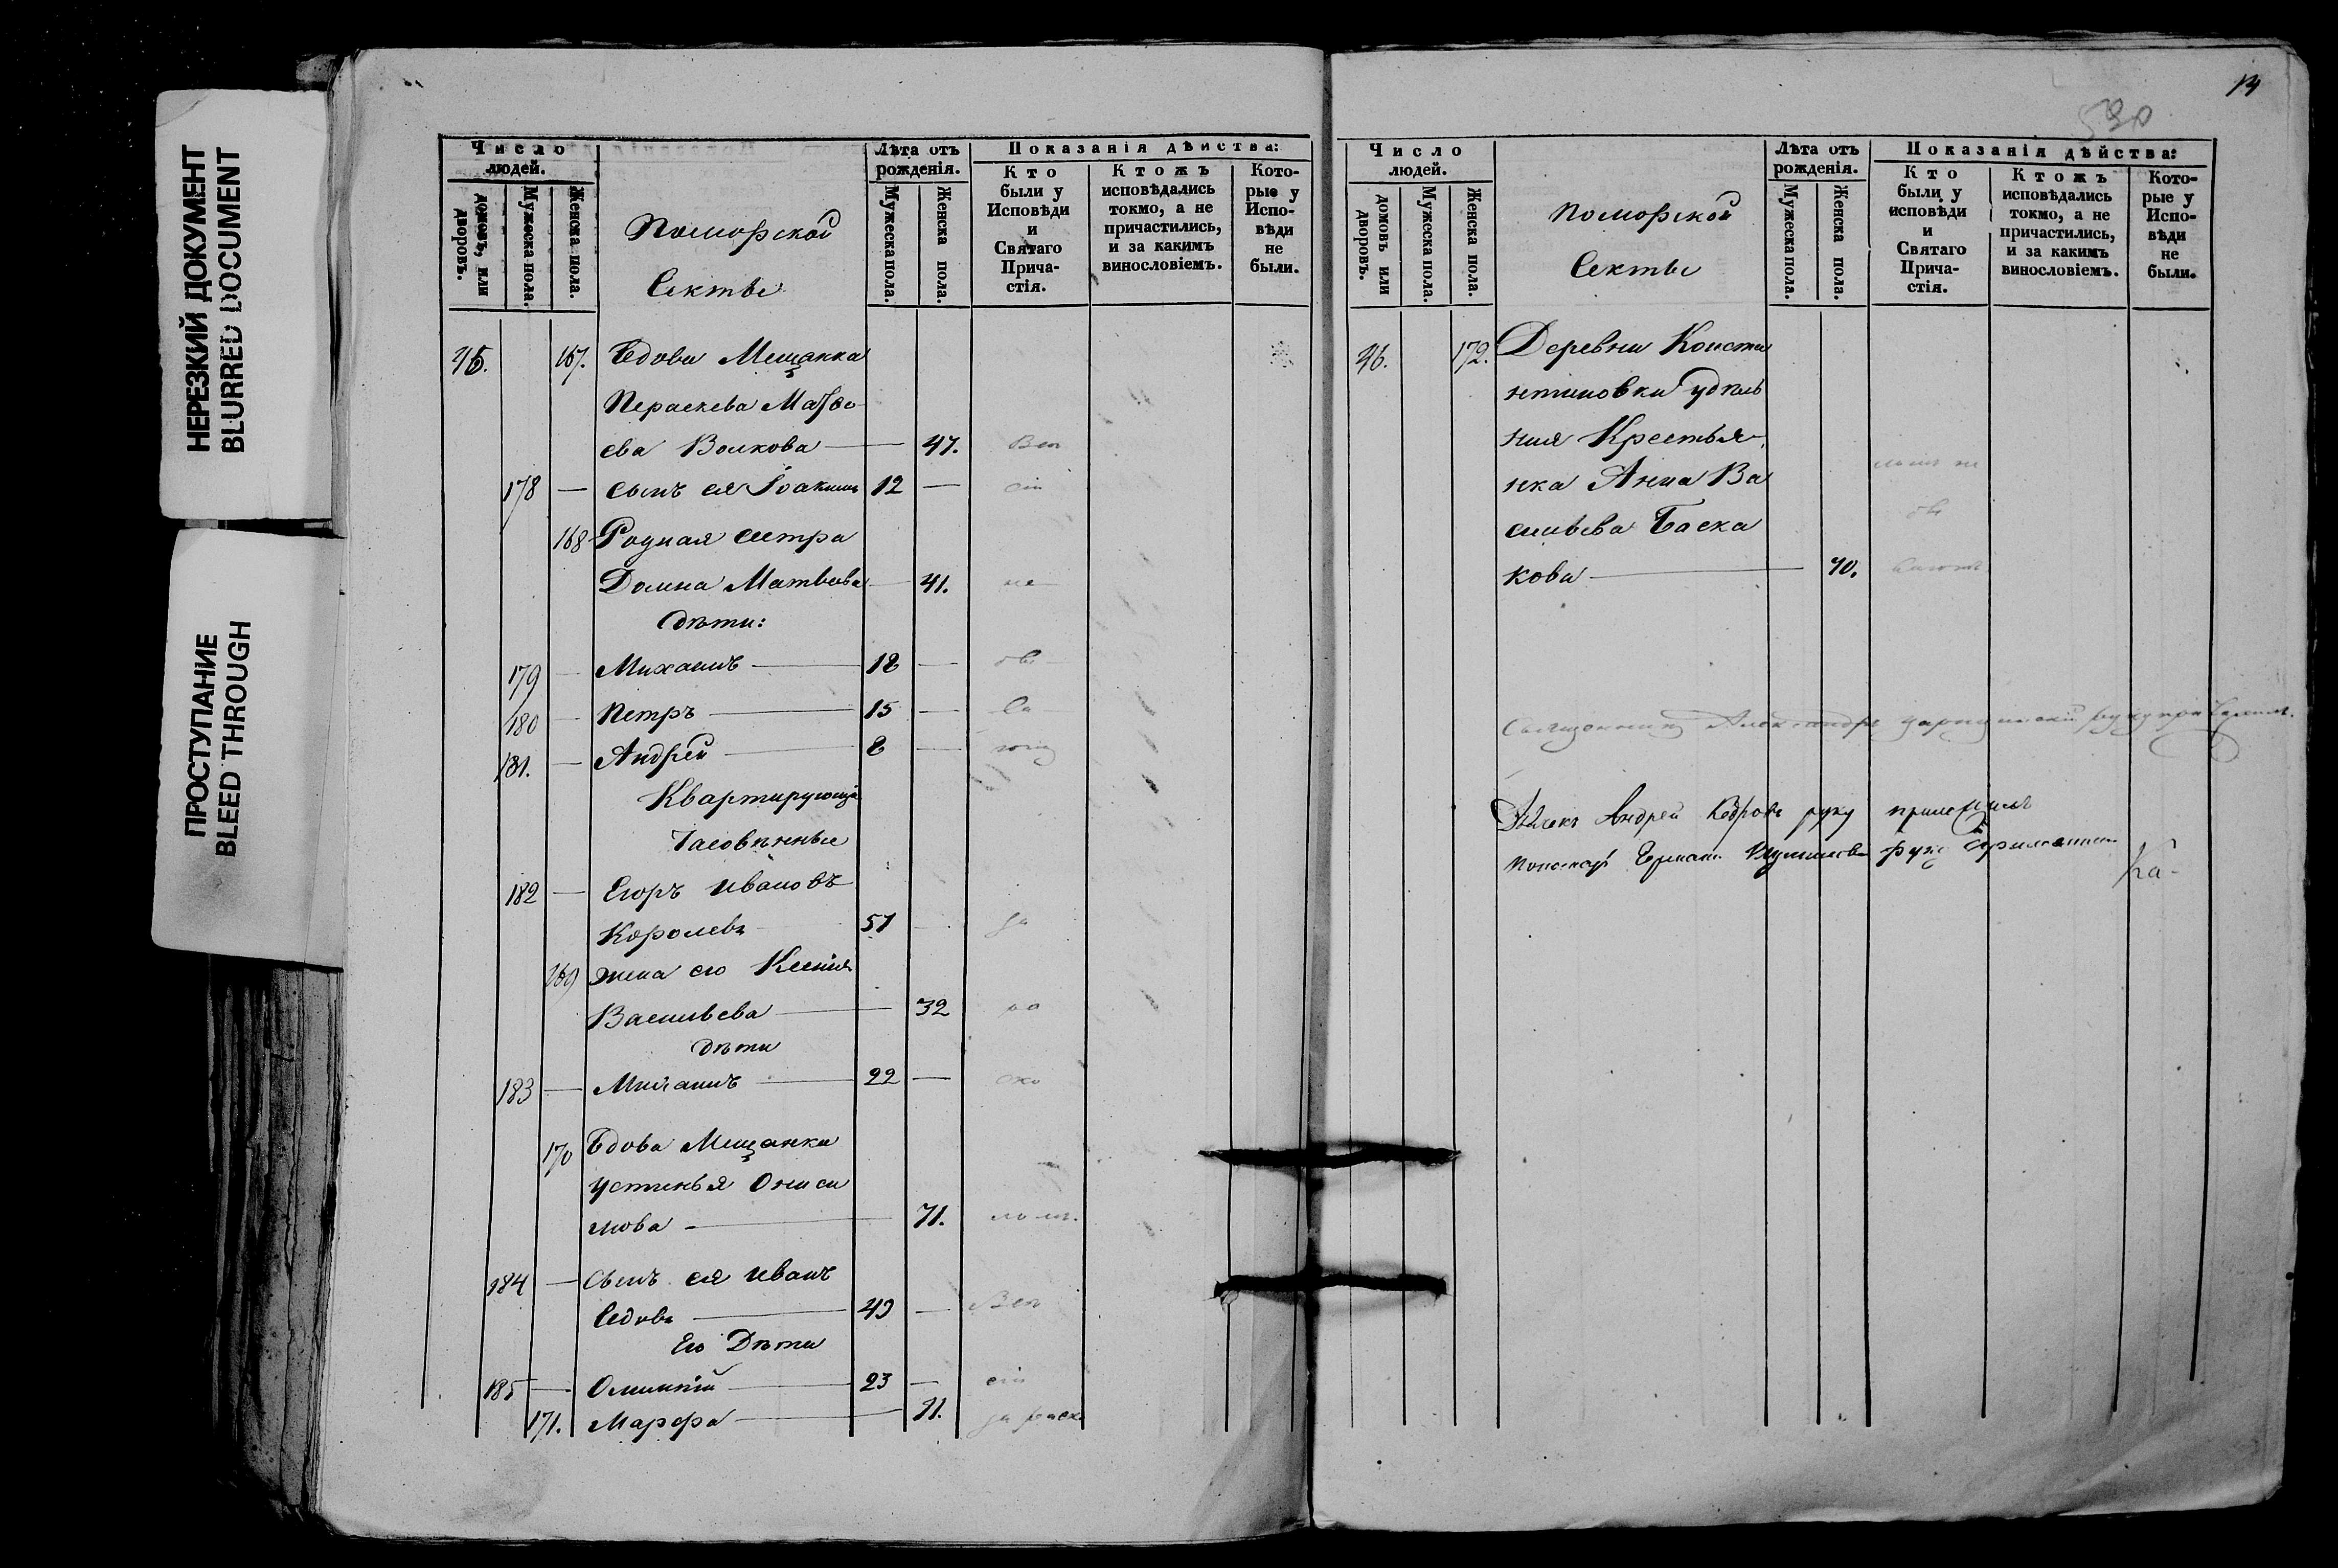 НЕРЕЗКИЙ ДОКУМЕНТ
BLURRED DOCUMENT
ПРОСТУПАНИЕ
BLEED THROUGH
Число людей.
домовъ, или дворовъ.
Мужеска пола.
Женска пола.
Поморской
Секты
Лѣта отъ рожденія.
Мужеска пола.
Женска пола.
Показанія дѣйства:
Кто были у Исповѣди и Святаго Прича-стія.
Ктожъ исповѣдались токмо, а не причастились, и за какимъ винословіемъ.
Кото-рые у Испо-вѣди не были.
45. 167. Вдова Мещанка
Параскева Матвѣ
ева Волкова 47. Всѣ
178 — сынъ ея Іоакимъ 12 — сіи
168 Родная сестра
Домна Матвѣева 41. не
дѣти:
179 — Михаилъ 18 —
180 — Петръ 15 —
181. — Андрей 8 —
Квартирующіе
Часовенные
182 — Егоръ Ивановъ
Королевъ 51 за
169 жена его Ксенія
Васильева 32 ра
дѣти
183 — Михаилъ 22 —
170 Вдова Мещанка
Устинья Ониси
мова 71.
184 — Сынъ ея Иванъ
Седовъ 49 — Всѣ
Его Дѣти
185 — Олимпій 23 — сіи
171. Марфа 21.
14
590
Число людей.
домовъ или дворовъ.
Мужеска пола.
Женска пола.
Поморской
Секты
Лѣта отъ рожденія.
Мужеска пола.
Женска пола.
Показанія дѣйства:
Кто были у исповѣди и Святаго Прича-стія.
Ктожъ исповѣдались токмо, а не причастились, и за какимъ винословіемъ.
Кото-рые у Испо-вѣди не были.
46. 172. Деревни Конста
нтиновки удѣль
ная Крестья
нка Анна Ва
сильева Баска
кова 70.
Священникъ Александръ руку приложилъ.
Дьякъ Андрей Кедровъ руку приложилъ
Пономарь Германъ руку приложилъ